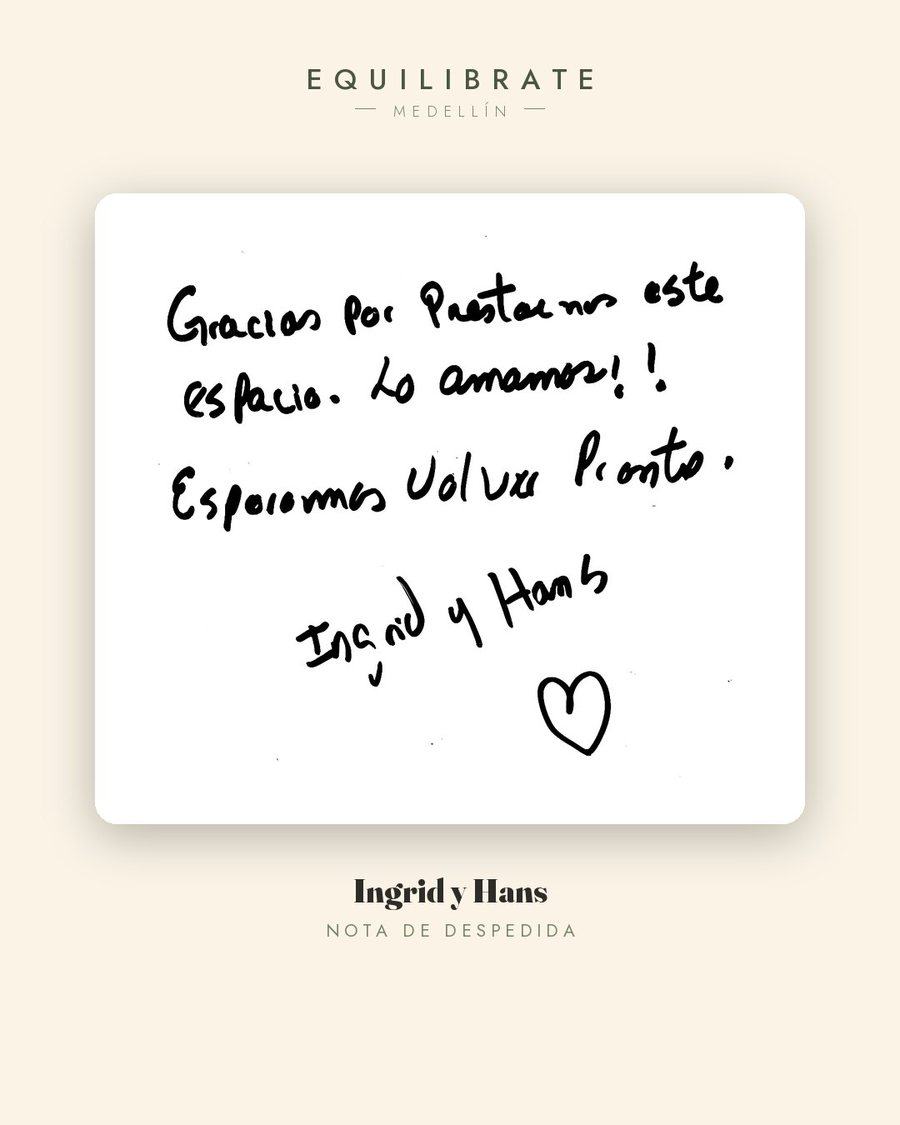 EQUILIBRATE
MEDELLÍN
Gracias por Prestarnos este
espacio. Lo amamos!!
Esperamos Volver Pronto.
Ingrid y Hans
Ingrid y Hans
NOTA DE DESPEDIDA